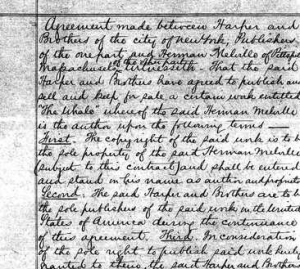 Agreement made between Harper and
Brothers of the city of New York, Publishers
of the one part and Herman Melville of Pittsf
Massachusetts of the other part
Witnesseth That the said
Harper and Brothers have agreed to publish an
sell and keep for sale a certain work entitled
"The Whale" whereof the said Herman Melville
is the author upon the following terms —
First. The copyright of the said work is to b
the sole property of the said Herman Melville
(subject to this contract) and shall be entered
and stand in his name as author and propriet
Second. The said Harper and Brothers are to b
the sole publishers of the said work in the United
States of America during the continuance
of this agreement. Third. In consideration
of the sole right to publish said work hereby
granted to them, the said Harper and Brothers